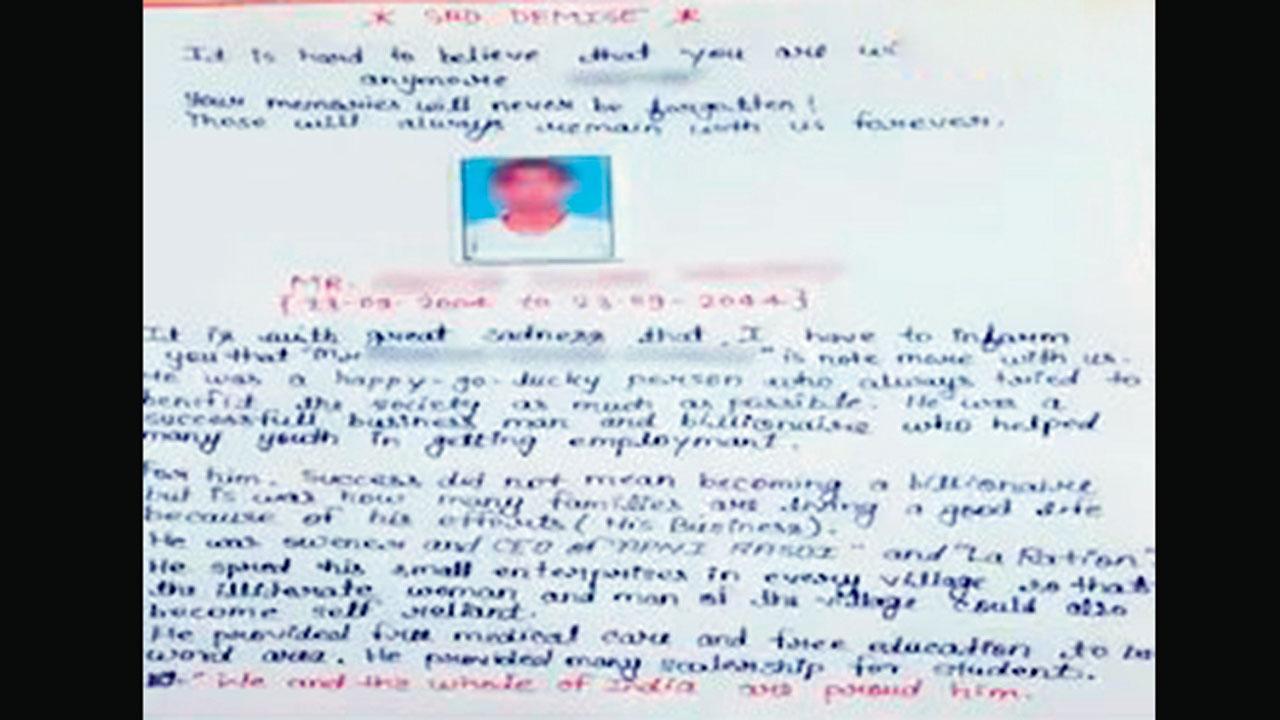 * SAD DEMISE *
It is hard to believe that you are
anymore
Your memories will never be forgotten!
Those will always remain with us forever.
MR.
It is with great sadness that I have to inform
you that "Mr " is note more with us.
He was a happy-go-lucky person who always tried to
benefit the society as much as possible. He was a
successfull business man and billionaire who helped
many youth in getting employmant.
For him. Success did not mean becoming a billionaire
but is was how many families are living a good life
because of his efforts (His Business).
He was owener and CEO of "APNI RASOI" and "La Ration"
He spred his small enterprises in every village so that
the illiterate woman and man of the village could also
become self reliant.
He provided free medical care and free education to
word area. He provided many scalership for student.
"We and the whole of India are proud him.